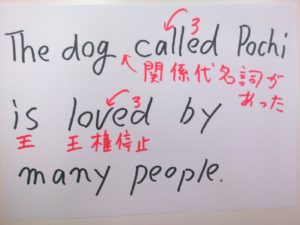 3
The dog called Pochi
関係代名詞が
あった
3
is loved by
王 王権停止
many people.